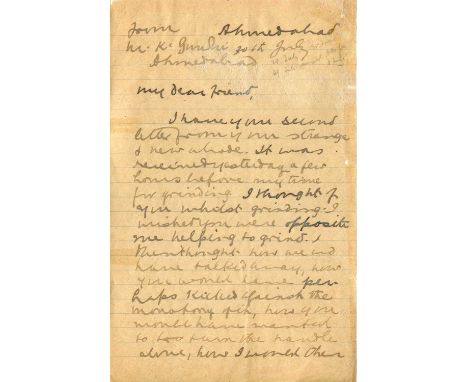 from Ahmedabad
M. K. Gandhi 30th July
Ahmedabad
My dear friend,
I have your second
letter from your strange
& new abode. It was
received yesterday a few
hours before my time
for grinding. I thought of
you whilst grinding. I
wished you were opposite
me helping to grind. I
then thought how we wd
have talked away, how
you would have per-
haps kicked against the
monotony of it, how you
would have wanted
to turn the handle
alone, how I would then